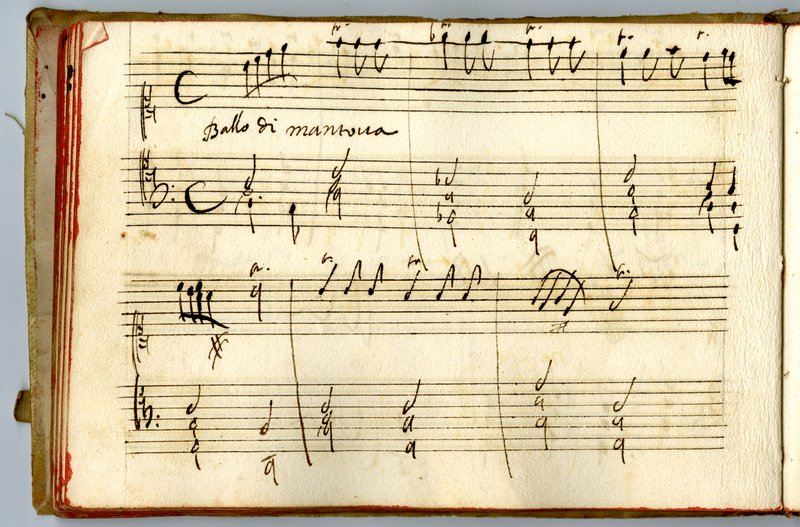 Ballo di mantoua